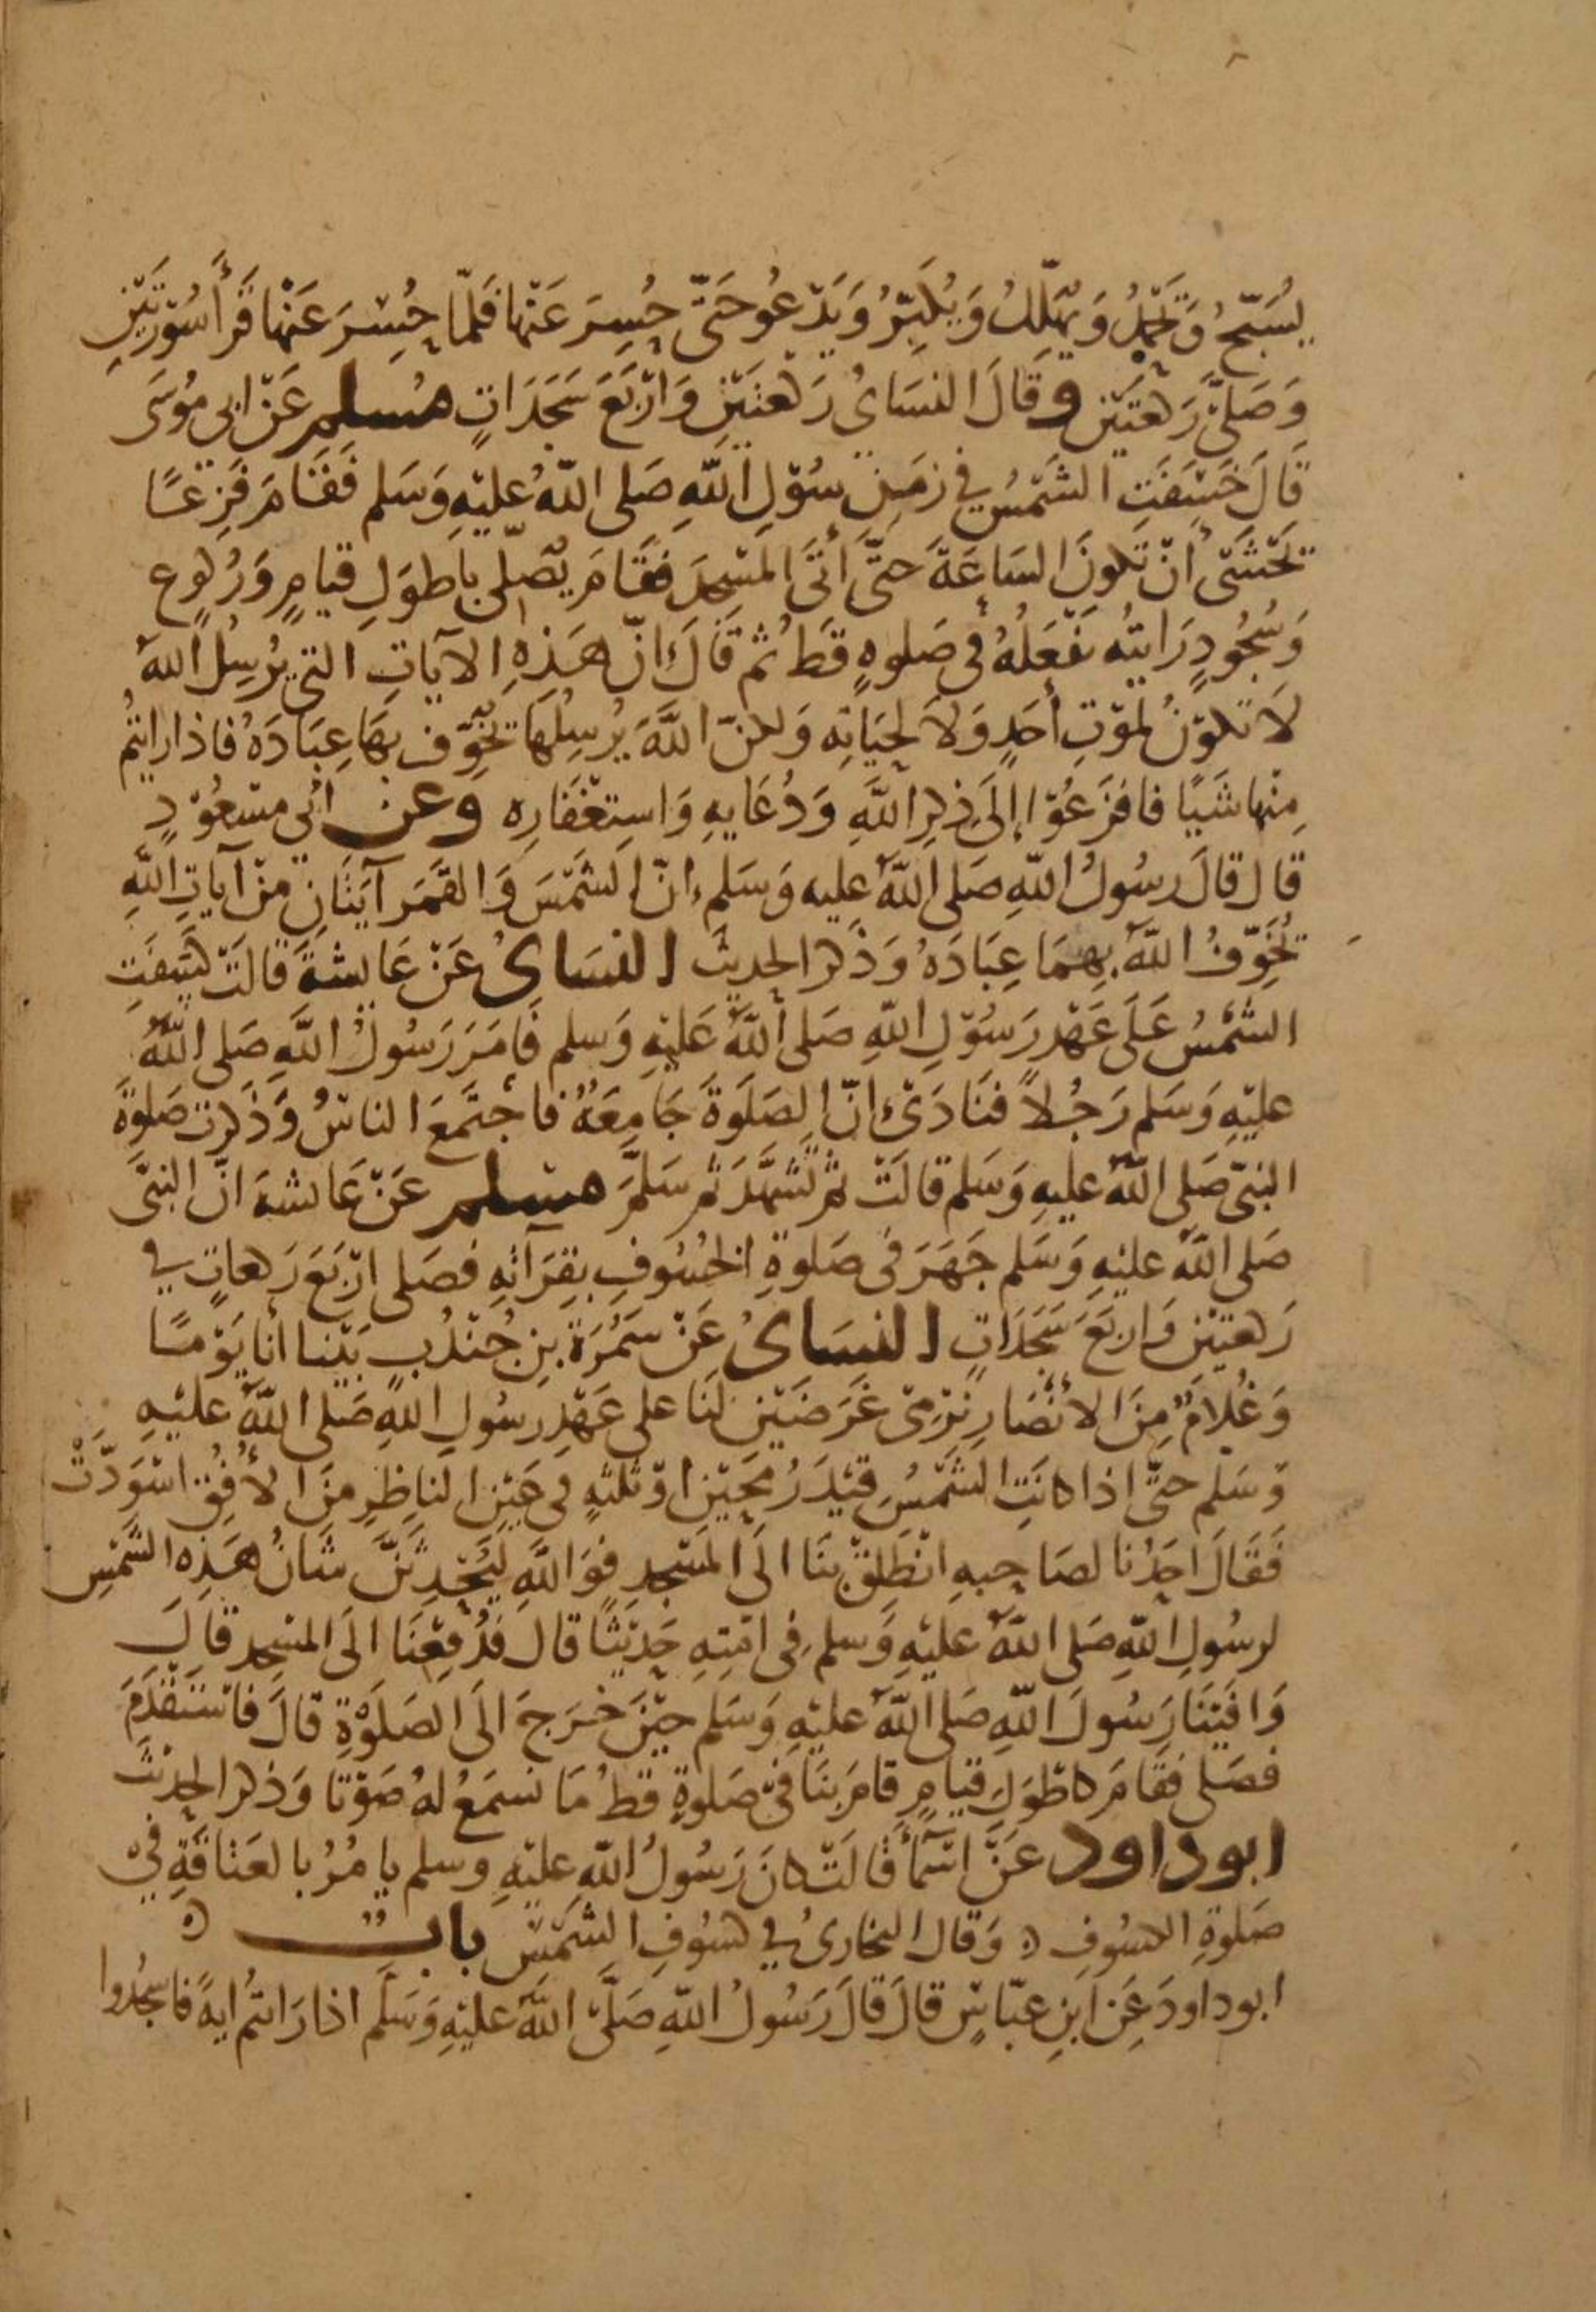 يُسَبِّحُ وَيَحْمَدُ وَيُهَلِّلُ وَيُكَبِّرُ وَيَدْعُو حَتَّى حُسِرَ عَنْهَا فَلَمَّا حُسِرَ عَنْهَا قَرَأَ سُوْرَتَيْنِ
وَصَلَّى رَكعَتَيْنِ وقَالَ النسَايُ رَكعَتَيْنِ وَارْبَعَ سَجَدَاتٍ مُسلم عَنْ ابي مُوسَى
قَالَ خَسَفَتِ الشَّمْسُ فِي زمَنِ رسُوْلِ اللَّهِ صَلى اللَّهُ عليْهِ وَسَلم فَقَامَ فَزِعًا
يَخْشَىْ أَنْ تَكونَ السَاعَةَ حتَّى أَتَى المَسْجِدَ فَقَامَ يُصَلِّى باطوَلِ قيامٍ وَرُكوع
وَسُجُودٍ رَايتُه يَفْعَلُهُ فى صَلوةٍ قَطُ ثم قَالَ انّ هَذِهِ الآيَاتِ التى يُرْسِلُ اللَّهُ
لَا تَكوْنُ لمَوْتِ أحَدٍ وَلَا لحَيَاتِه وَلكنّ اللَّهَ يُرْسِلُهَا يخَوِّف بهَا عِبَادَهُ فاذا رايتُم
مِنْها شَيًا فافزَعُوْا إِلَى ذِكرِ اللَّهِ وَدُعَايهِ وَاسِتغْفَارِه وعن ابي مسْعُوْدٍ
قال قالَ رسُولُ اللّهِ صَلى اللَّهُ عليه وَسَلمِ انّ الشَمْسَ وَالقَمَر آيَتَانِ مِنْ آيَاتِ اللَّهِ
يُخَوِّفُ اللَّهُ بِهِمَا عِبَادَهُ وَذَكر الحديث النسَاىُ عَنْ عَايشةَ قَالَتْ كسَفَتِ
الشَمْسُ عَلَى عَهْدِ رَسُوْلِ اللَّهِ صَلى اللَّهُ عَليْهِ وَسلم فَامَرَ رَسُولُ اللَّهِ صَلى اللَّهُ
عليْهِ وَسَلم رَجُلاً فنَادَىْ انّ الصَلَوةَ جَامِعَةٌ فاجْتَمَعَ الناسُ وَذَكرت صَلوةَ
النبيّ صَلى اللَّهُ عليهِ وَسَلم قالَتْ ثم تشَهَّدَ ثم سَلَّمَ مسْلم عَنْ عَايشهَ انّ النبيَّ
صَلى اللَّهُ عليْهِ وَسَلم جَهَرَ فى صَلوةِ الخُسُوفِ بِقِرَآتِهِ فصَلى ارْبَعَ رَكعاتٍ في
رَكعتيْن وَاربَعَ سَجَدَاتٍ النسَاىُ عَنْ سَمُرَةَ بنِ جُنْدُبٍ بَيْنا أنا يَوْمًا
وَغُلَامٌ مِنَ الانْصَارِ نرْمِىْ غَرَضَيْنِ لَنَا على عَهْدِ رسُولِ اللَّهِ صَلى اللَّهُ عليْهِ
وَسَلم حتَّى اذا كانَتِ الشَّمْسُ قيْدَ رُمْحَيْنِ اوْ ثلثهٍ في عَيْنِ الناظِرِ مِنَ الأُفُقِ اسْوَدَّتْ
فَقَالَ احَدُنا لصَاحِبهِ انْطَلِقْ بنَا الَى المَسْجِدِ فوَاللَّهِ لَيُحْدِثَنَّ شَانُ هَذِهِ الشَّمْسِ
لرسُولِ اللَّهِ صَلى اللَّهُ عليْهِ وَسلم فى امّتِهِ حَدِيْثًا قالَ فَدُفِعْنَا الَى المسْجِد قالَ
وَافَيْنَا رَسُولَ اللّهِ صَلى اللَّهُ عليْهِ وَسَلم حيْنَ خَرَجَ الَى الصَلَوْةِ قالَ فاسْتَقْدَمَ
فصَلى فقَامَ كاطْوَلِ قيَامٍ قامَ بِنَا فىْ صَلوةٍ قطُ مَا نسمَعُ لهُ صَوْتا وَذكر الحدِيْثَ
ابوداود عَنْ اسْمَآءَ قَالَتْ كانَ رَسُولُ اللَّهِ عليْهِ وسلم يامُرُ بالعَتاقَةِ فيْ
صَلوةِ الكسُوفِ ه وَقال البخارىُ في كسُوفِ الشَمْسِ بابٌ ه
ابوداودَ عَنِ ابنِ عبّاسٍ قالَ قالَ رَسُولُ اللّهِ صَلَّى اللَّهُ عليْهِ وَسَلَّم اذا رَايتُم ايةً فاسجُدُوا